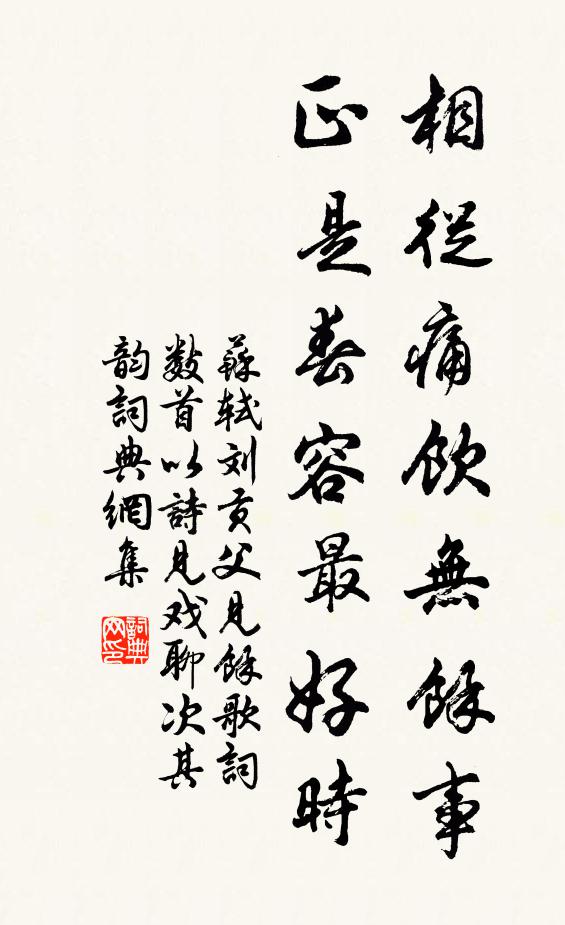 相從痛飲無餘事
正是春容最好時
蘇軾刘貢父見餘歌詞
數首以詩見戏聊次其
韵詞典網集
詞典
网印